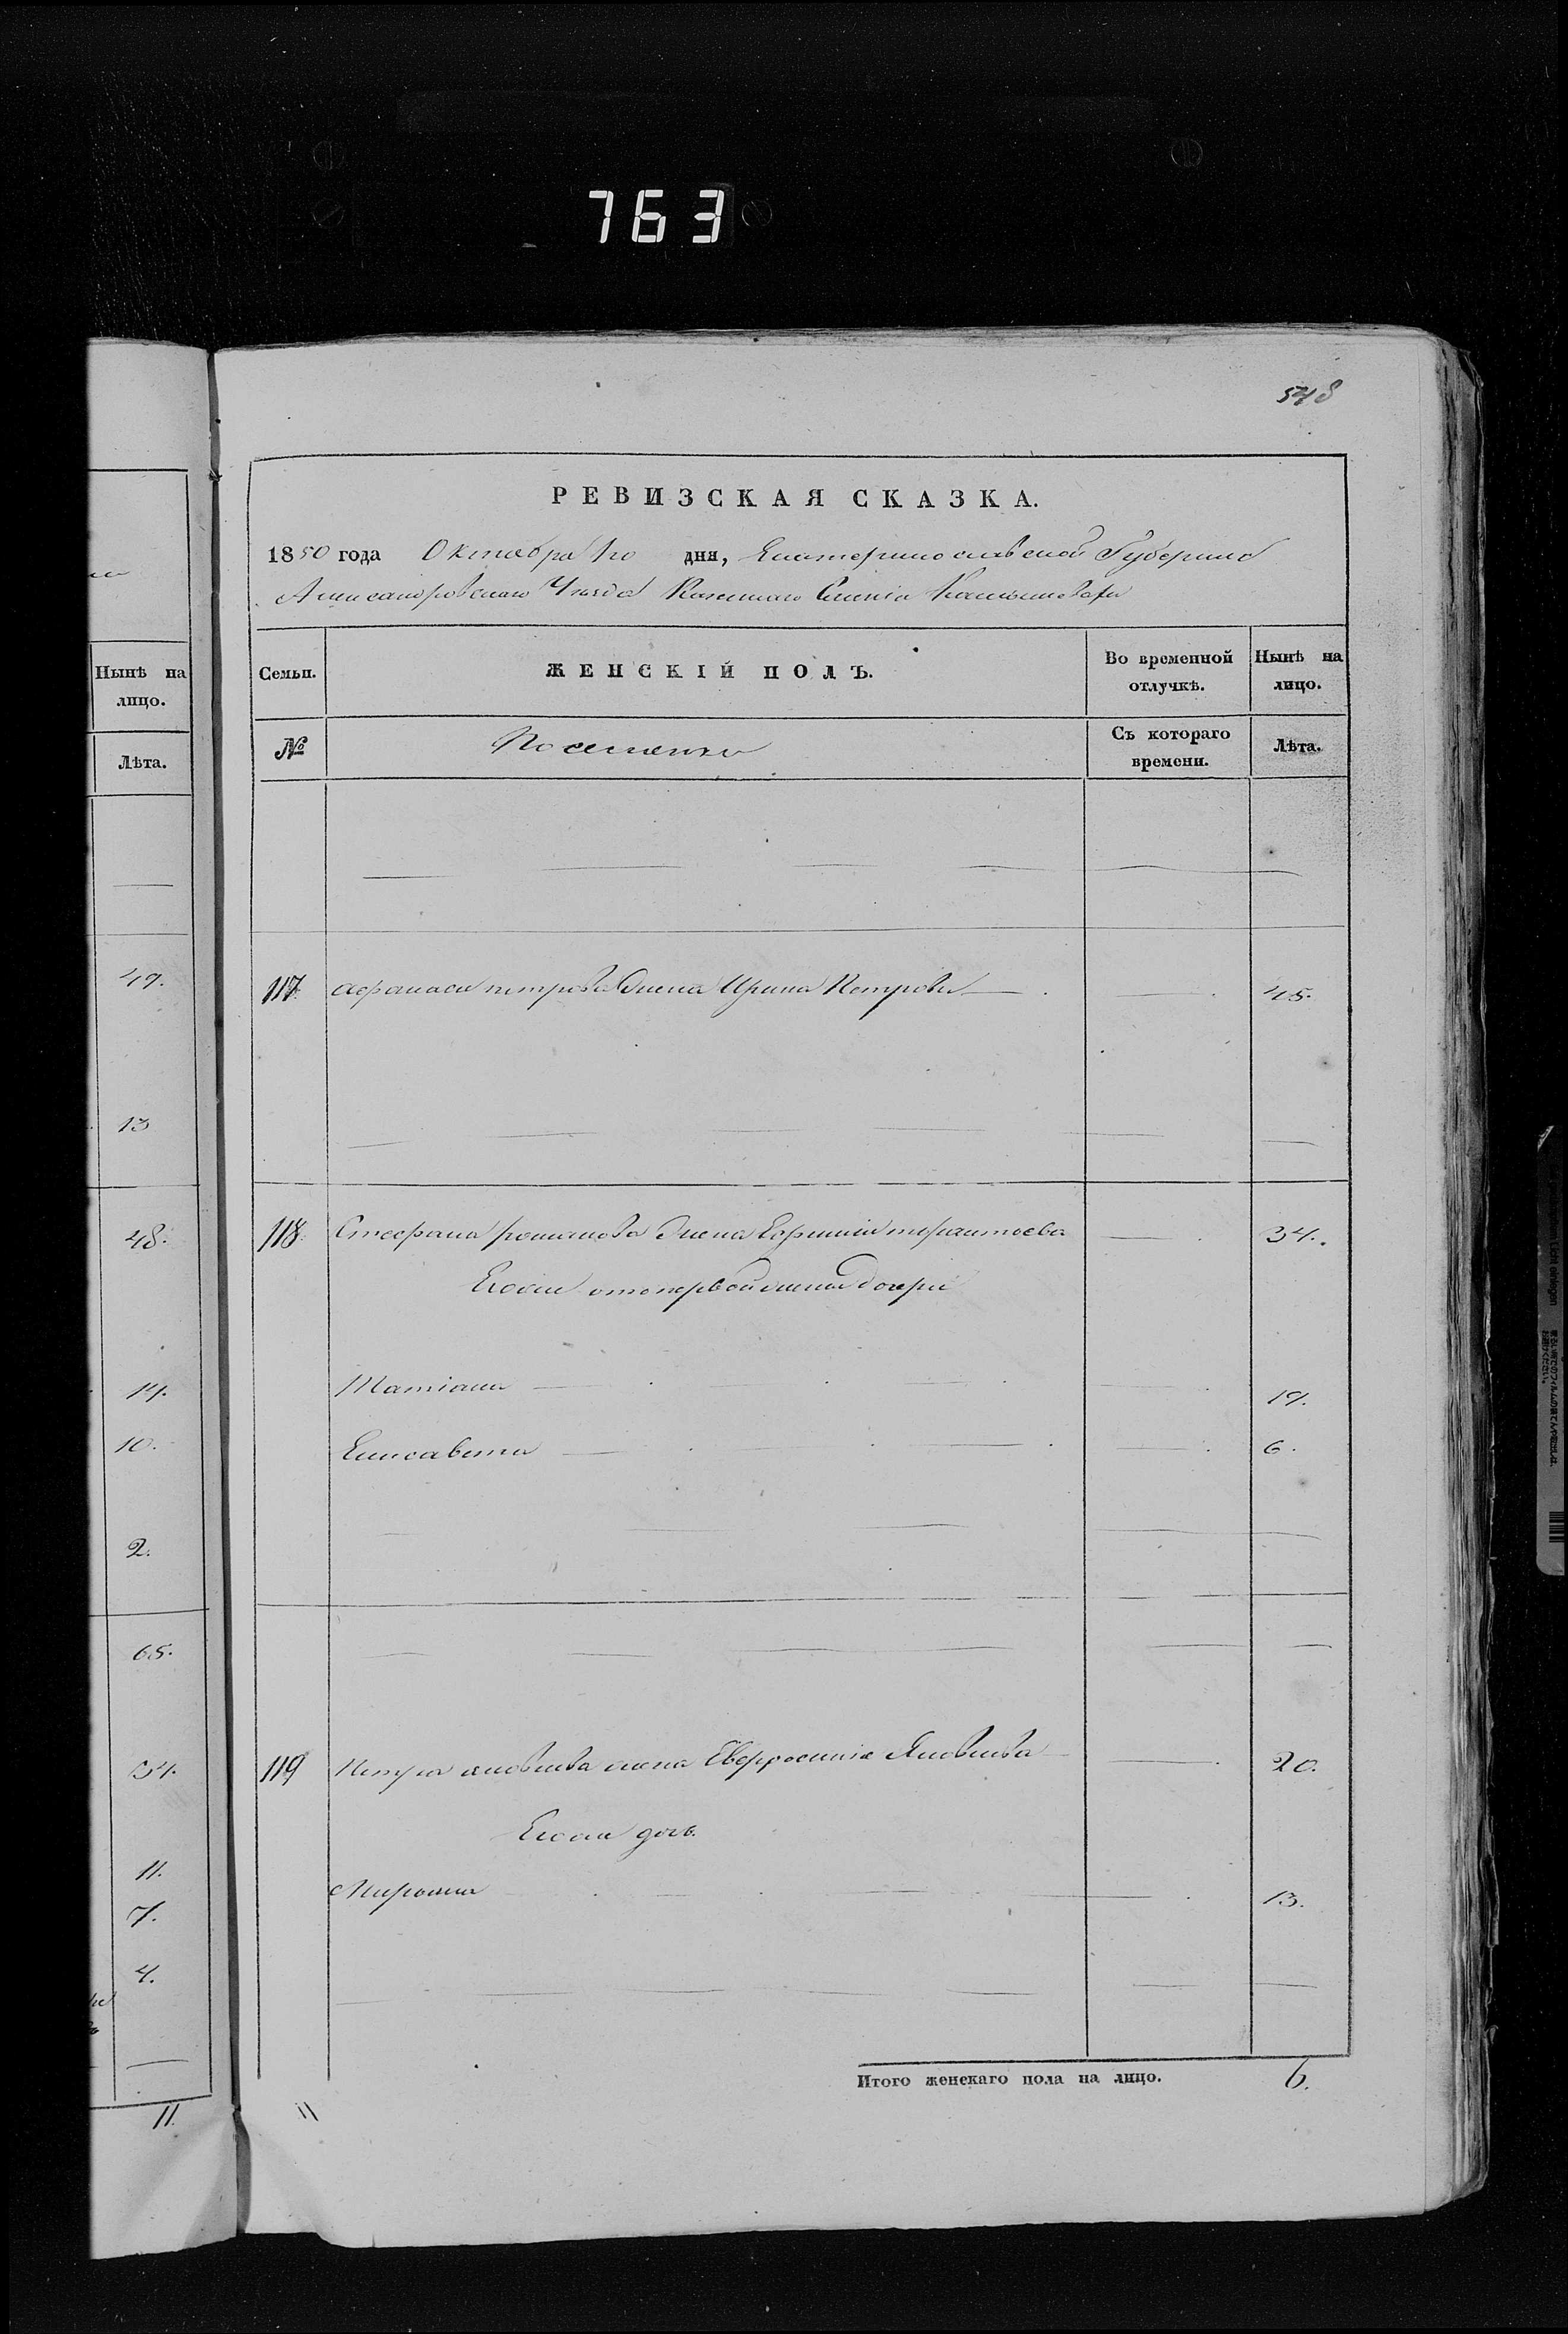 763
548
РЕВИЗСКАЯ СКАЗКА.
1850 года Октября 1го дня, Екатеринославской Губернiи
Александровскаго Уѣзда Казеннаго Селенiя
Нынѣ на лицо.
Лѣта.
49.
13
48.
14.
10.
2.
65.
34.
11.
7.
4.
11.
Семьи. ЖЕНСКІЙ ПОЛЪ. Во временной отлучкѣ. Нынѣ на лицо.
№ Поселенки Съ котораго времени. Лѣта.
117 Афанасія петрова жена Ирина Петрова 45.
118 Стефана романова жена Ефимія терентьева 34.
Егоже отъ первой жены дочери
Татіана 19.
Елисавета 6.
119 Петра яковлева жена Евфросинія Яковлева 20.
Егоже дочь
13.
Итого женскаго пола на лицо. 6.